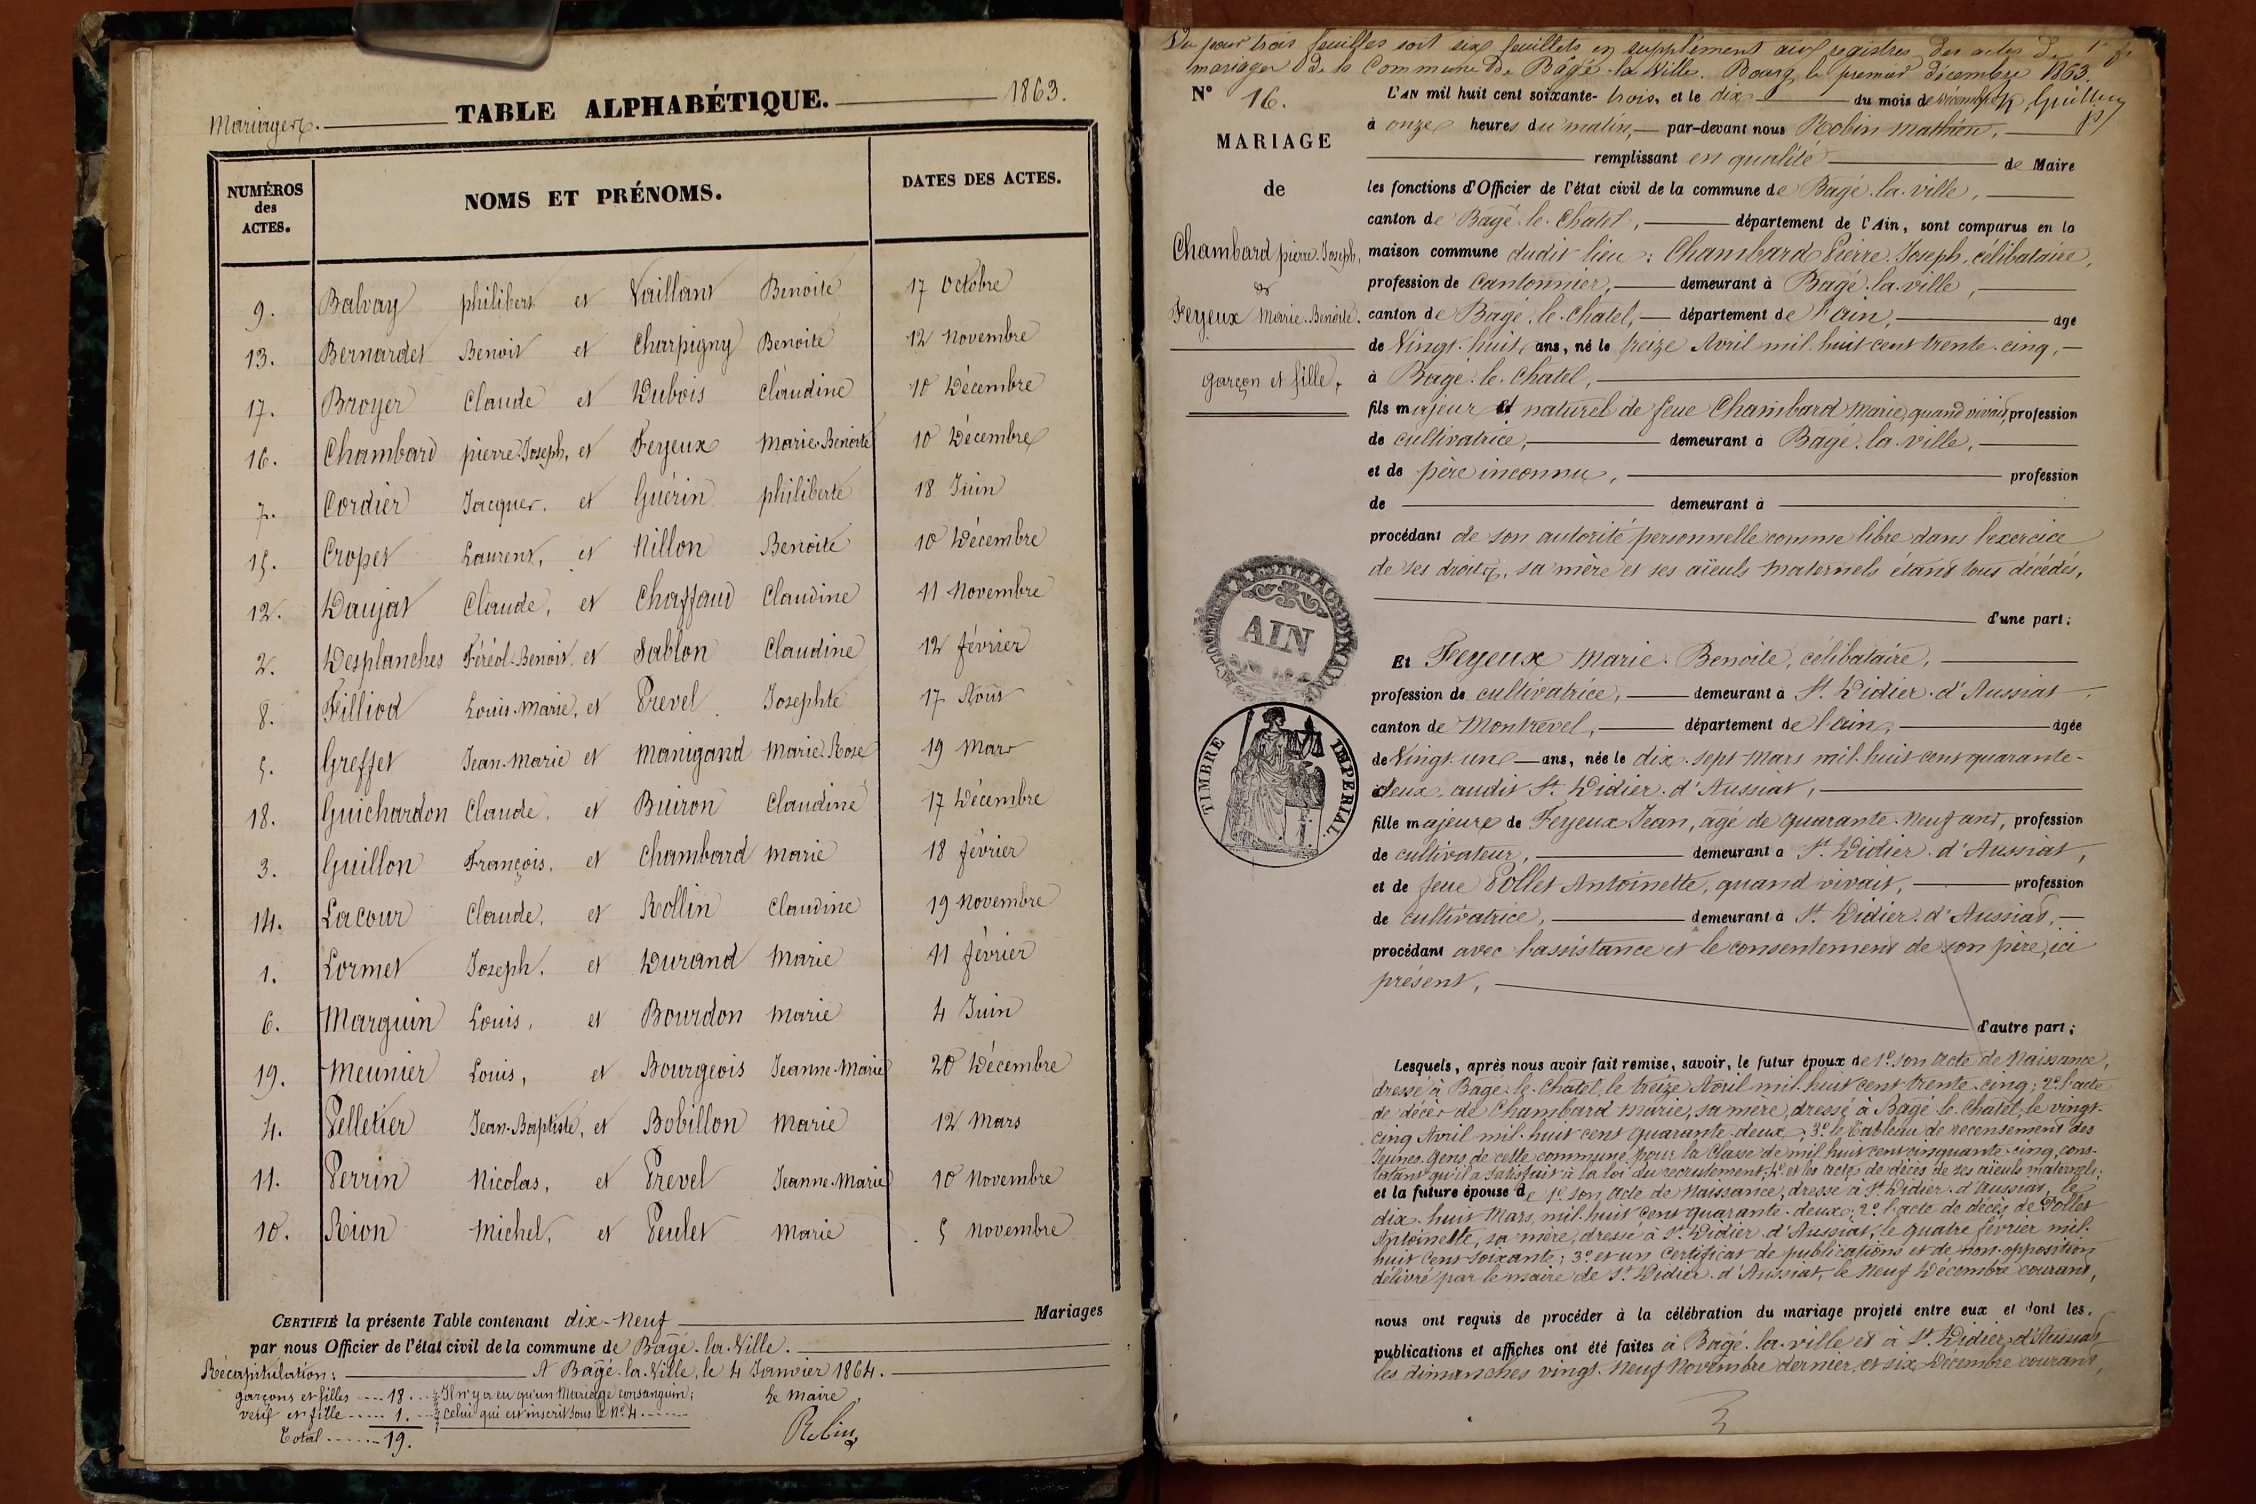 Mariages. TABLE ALPHABÉTIQUE. 1863.
NUMÉROS des ACTES. NOMS ET PRÉNOMS. DATES DES ACTES.
9. Balvay philibert et Vaillant Benoite 17 Octobre
13. Bernardet Benoit et Charpigny Benoite 12 Novembre
17. Broyer Claude et Dubois Claudine 10 Décembre
16. Chambard pierre-Joseph, et Feyeux Marie-Benoite 10 Décembre
7. Cordier Jacques, et Guérin philiberte 18 Juin
15. Cropet Laurent, et Nillon Benoite 10 Décembre
12. Daujat Claude, et Chaffaud Claudine 11 Novembre
2. Desplanches Féréol-Benoit, et Sablon Claudine 12 février
8. Filliod Louis-Marie, et Prevel Josephte 17 Août
5. Greffet Jean-Marie et Manigand Marie-Rose 19 Mars
18. Guichardon Claude, et Buiron Claudine 17 Décembre
3. Guillon François, et Chambard Marie 18 février
14. Lacour Claude, et Rollin Claudine 19 Novembre
1. Lormet Joseph, et Durand Marie 11 février
6. Marguin Louis, et Bourdon Marie 4 Juin
19. Meunier Louis, et Bourgeois Jeanne-Marie 20 Décembre
4. Pelletier Jean-Baptiste, et Bobillon Marie 12 Mars
11. Perrin Nicolas, et Prevel Jeanne-Marie 10 Novembre
10. Rion Michel, et Peulet Marie 5 Novembre
CERTIFIÉ la présente Table contenant dix-neuf Mariages
par nous Officier de l'état civil de la commune de Bagé-la-Ville.
Récapitulation: A Bagé-la-Ville, le 4 Janvier 1864.
garçons et filles 18. Il n'y a eu qu'un Mariage consanguin; Le Maire
veuf et fille 1. celui qui est inscrit sous le N° 4.
Total 19. Robin
Vu pour trois feuilles soit six feuillets en supplément aux registres des actes de
mariages de la Commune de Bagé-la-Ville. Bourg le premier décembre 1863.
N° 16.
MARIAGE
de
Chambard pierre-Joseph,
et
Feyeux Marie-Benoite.
garçon et fille,
AIN
TIMBRE IMPERIAL.
L'AN mil huit cent soixante-trois, et le dix du mois de décembre,
à onze heures du matin, par-devant nous Robin Mathieu,
remplissant en qualité de Maire
les fonctions d'Officier de l'état civil de la commune de Bagé-la-ville,
canton de Bagé-le-Chatel, département de l'Ain, sont comparus en la
maison commune dudit lieu: Chambard Pierre-Joseph, célibataire,
profession de Cantonnier, demeurant à Bagé-la-ville,
canton de Bagé-le-Chatel, département de l'ain, âgé
de Vingt-huit ans, né le treize Avril mil-huit cent trente-cinq,
à Bagé-le-Chatel,
fils majeur et naturel de feue Chambard Marie, quand vivait, profession
de cultivatrice, demeurant à Bagé-la-ville,
et de père inconnu, profession
de demeurant à
procédant de son autorité personnelle comme libre dans l'exercice
de ses droits, sa mère et ses aïeuls maternels étant tous décédés,
d'une part;
Et Feyeux Marie-Benoite, célibataire,
profession de cultivatrice, demeurant à St. Didier-d'Aussiat,
canton de Montrevel, département de l'ain, âgée
de Vingt-un ans, née le dix-sept Mars mil-huit cent quarante-
deux, audit St. Didier-d'Aussiat,
fille majeure de Feyeux Jean, agé de quarante-neuf ans, profession
de cultivateur, demeurant à St. Didier-d'Aussiat,
et de feue Pollet Antoinette, quand vivait, profession
de cultivatrice, demeurant à St. Didier-d'Aussiat,
procédant avec l'assistance et le consentement de son père, ici
présent,
d'autre part;
Lesquels, après nous avoir fait remise, savoir, le futur époux de 1° son acte de Naissance,
dressé à Bagé-le-Chatel, le treize Avril mil-huit cent trente-cinq; 2° l'acte
de décès de Chambard Marie, sa mère, dressé à Bagé-le-Chatel, le vingt-
cinq Avril mil-huit cent quarante-deux; 3° le tableau de recensement des
Jeunes-Gens de cette commune pour la Classe de mil-huit cent cinquante-cinq, cons-
tatant qu'il a satisfait à la loi du recrutement; 4° et les actes de décès de ses aïeuls maternels;
et la future épouse de 1° son acte de Naissance, dressé à St. Didier-d'Aussiat, le
dix-huit Mars, mil-huit cent quarante-deux; 2° l'acte de décès de Pollet
Antoinette, sa mère, dressé à St. Didier-d'Aussiat, le quatre février mil-
huit cent-soixante; 3° et un Certificat de publications et de non-opposition
délivré par le maire de St. Didier-d'Aussiat, le neuf Décembre courant,
nous ont requis de procéder à la célébration du mariage projeté entre eux et dont les
publications et affiches ont été faites à Bagé-la-ville et à St. Didier-d'Aussiat
les dimanches vingt-neuf Novembre dernier, et six Décembre courant,